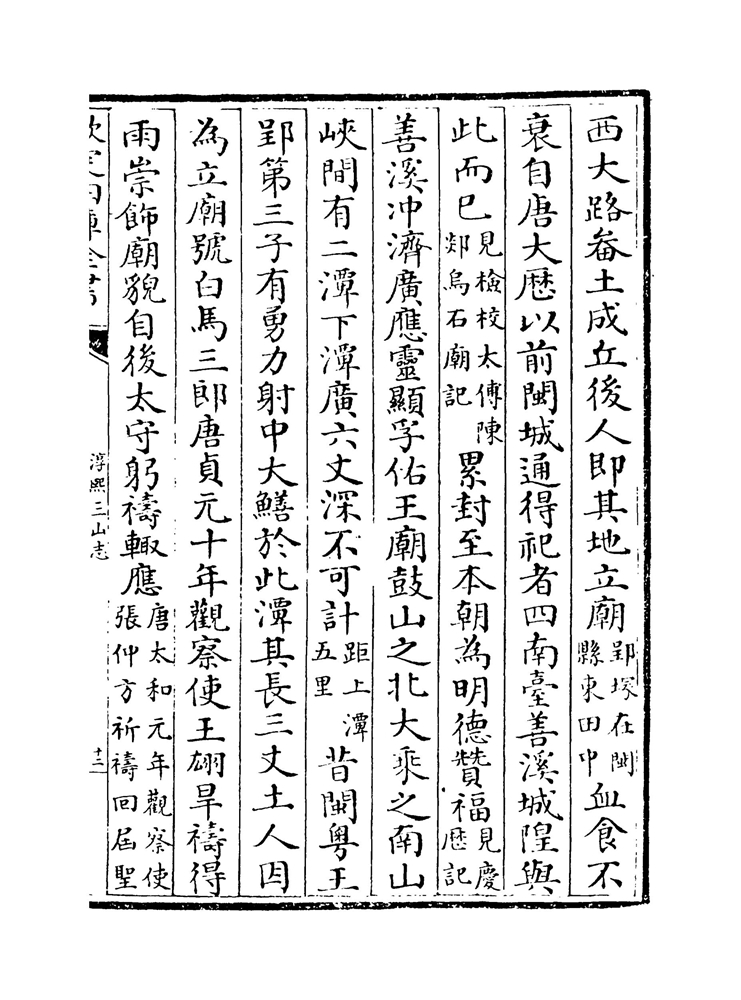 西大路畚土成丘後人即其地立廟郢塜在閩縣東田中血食不
衰自唐大歴以前閩城通得祀者四南臺善溪城隍與
此而已見檢校太傅陳郯烏石廟記累封至本朝為明德贊福見慶歴記
善溪冲濟廣應靈顯孚佑王廟鼓山之北大乘之南山
峽間有二潭下潭廣六丈深不可計距上潭五里昔閩粤王
郢第三子有勇力射中大鱔於此潭其長三丈土人因
為立廟號白馬三郎唐貞元十年觀察使王翃旱禱得
雨崇飾廟貌自後太守躬禱輙應唐太和元年觀察使張仲方祈禱回屆聖
欽定四庫全書
淳熙三山志
十二